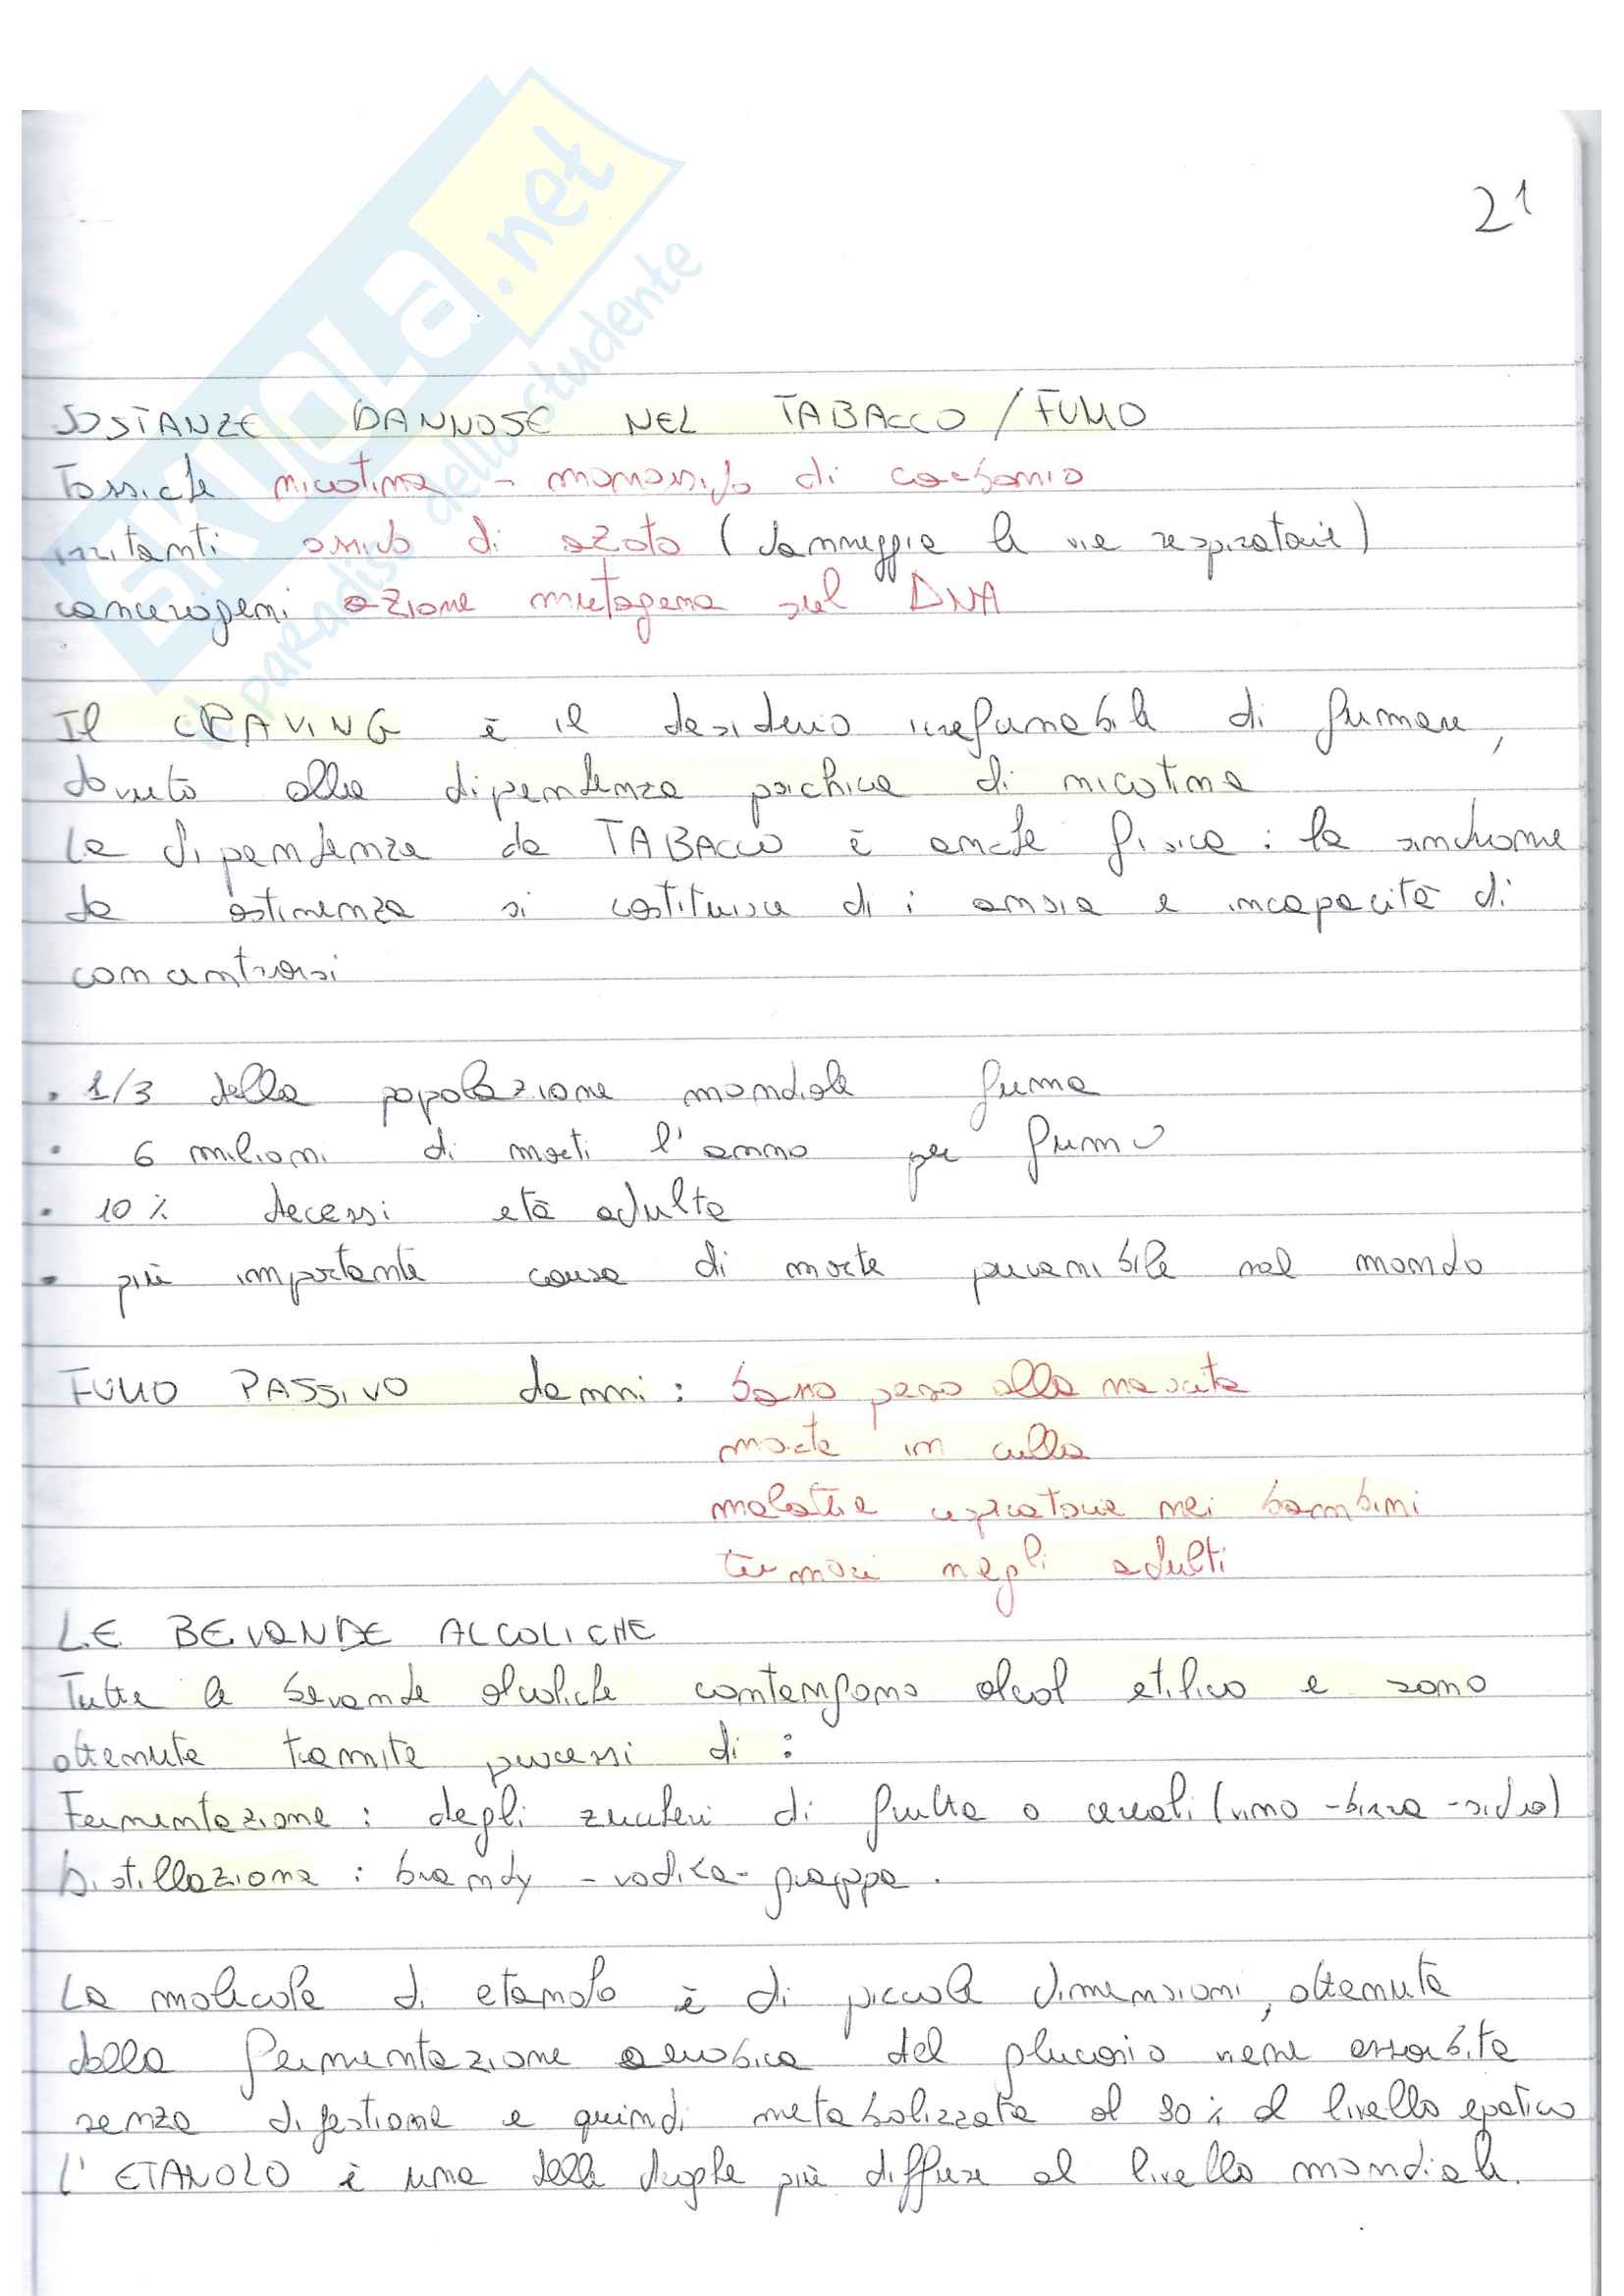 SKUOLA.net
il paradiso dello studente
21
SOSTANZE DANNOSE NEL TABACCO / FUMO
Tossiche nicotina - monossido di carbonio
irritanti ossido di azoto (danneggia le vie respiratorie)
cancerogeni azione mutagena sul DNA
Il CRAVING è il desiderio irrefrenabile di fumare,
dovuto alla dipendenza psichica di nicotina
La dipendenza da TABACCO è anche fisica : la sindrome
da astinenza si costituisce di : ansia e incapacità di
concentrarsi
• 1/3 della popolazione mondiale fuma
• 6 milioni di morti l'anno per fumo
• 10 % decessi età adulta
• più importante causa di morte prevenibile nel mondo
FUMO PASSIVO danni : basso peso alla nascita
morte in culla
malattie respiratorie nei bambini
tumori negli adulti
LE BEVANDE ALCOLICHE
Tutte le bevande alcoliche contengono alcol etilico e sono
ottenute tramite processi di :
Fermentazione : degli zuccheri di frutta o cereali (vino - birra - sidro)
Distillazione : brandy - vodka - grappa .
La molecola di etanolo è di piccole dimensioni, ottenuta
dalla fermentazione aerobica del glucosio viene assorbita
senza digestione e quindi metabolizzata al 90 % a livello epatico
L' ETANOLO è una delle droghe più diffuse al livello mondiale.